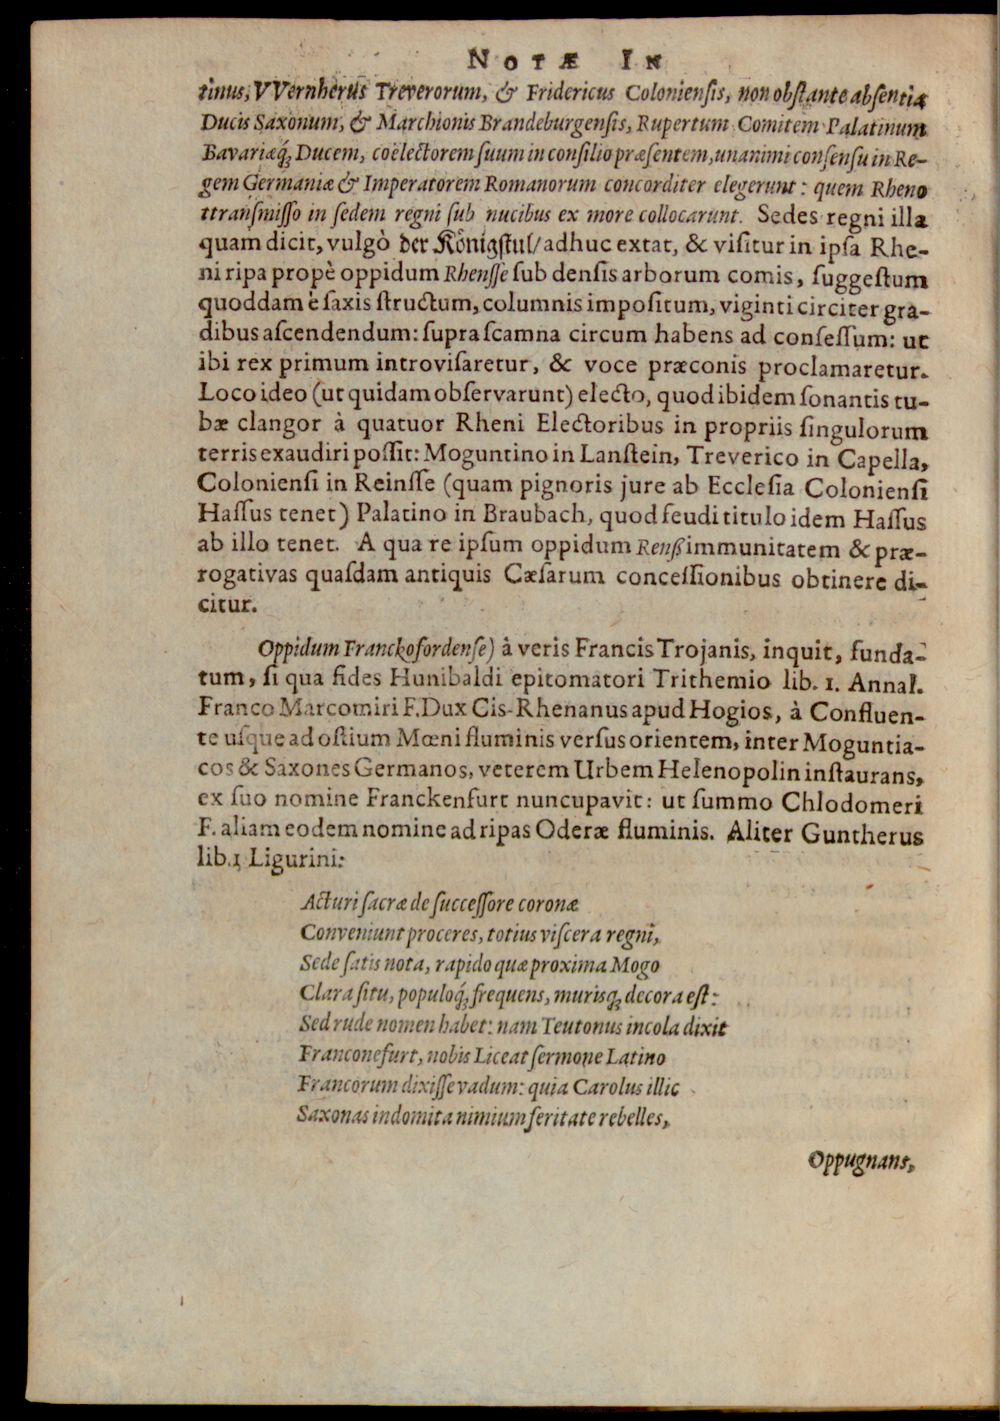 NOTÆ IN
tinus, VVernherus Treverorum, & Fridericus Coloniensis, non obstante absentia
Ducis Saxonum, & Marchionis Brandeburgensis, Rupertum Comitem Palatinum
Bavariæq́; Ducem, coëlectorem suum in consilio præsentem, unanimi consensu in Re-
gem Germaniæ & Imperatorem Romanorum concorditer elegerunt: quem Rheno
ttransmisso in sedem regni sub nucibus ex more collocarunt. Sedes regni illa
quam dicit, vulgò der Königstul/ adhuc extat, & visitur in ipsa Rhe-
ni ripa propè oppidum Rhensse sub densis arborum comis, suggestum
quoddam è saxis structum, columnis impositum, viginti circiter gra-
dibus ascendendum: supra scamna circum habens ad consessum: ut
ibi rex primum introvisaretur, & voce præconis proclamaretur.
Loco ideo (ut quidam observarunt) electo, quod ibidem sonantis tu-
bæ clangor à quatuor Rheni Electoribus in propriis singulorum
terris exaudiri possit: Moguntino in Lanstein, Treverico in Capella,
Coloniensi in Reinsse (quam pignoris jure ab Ecclesia Coloniensi
Hassus tenet) Palatino in Braubach, quod feudi titulo idem Hassus
ab illo tenet. A qua re ipsum oppidum Renß immunitatem & præ-
rogativas quasdam antiquis Cæsarum concessionibus obtinere di-
citur.
Oppidum Franckofordense) à veris Francis Trojanis, inquit, funda-
tum, si qua fides Hunibaldi epitomatori Trithemio lib. 1. Annal.
Franco Marcomiri F. Dux Cis-Rhenanus apud Hogios, à Confluen-
te usque ad ostium Mœni fluminis versus orientem, inter Moguntia-
cos & Saxones Germanos, veterem Urbem Helenopolin instaurans,
ex suo nomine Franckenfurt nuncupavit: ut summo Chlodomeri
F. aliam eodem nomine ad ripas Oderæ fluminis. Aliter Guntherus
lib. 1 Ligurini:
Acturi sacræ de successore coronæ
Conveniunt proceres, totius viscera regni,
Sede satis nota, rapido quæ proxima Mogo
Clara situ, populoq́; frequens, murisq́; decora est:
Sed rude nomen habet: nam Teutonus incola dixit
Franconefurt, nobis Liceat sermone Latino
Francorum dixisse vadum: quia Carolus illic
Saxonas indomita nimium feritate rebelles,
Oppugnans,